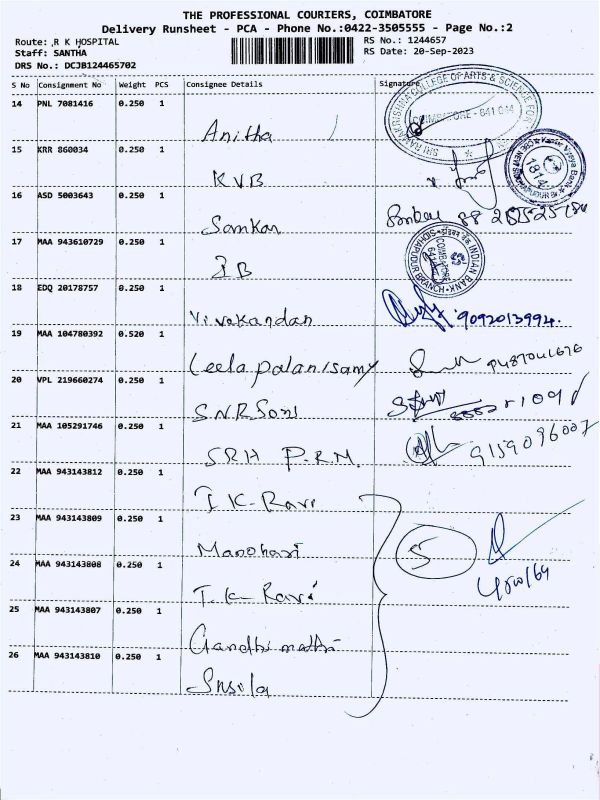 THE PROFESSIONAL COURIERS, COIMBATORE
Delivery Runsheet - PCA - Phone No.:0422-3505555 - Page No.:2
Route: R K HOSPITAL
RS No.: 1244657
Staff: SANTHA
RS Date: 20-Sep-2023
DRS No.: DCJB124465702
S No Consignment No Weight PCS Consignee Details Signature
14 PNL 7081416 0.250 1 Anitha
SRI RAMAKRISHNA COLLEGE OF ARTS & SCIENCE FOR
COIMBATORE - 641 014
15 KRR 860034 0.250 1 KVB
1814
16 ASD 5003643 0.250 1 Samkar
17 MAA 943610729 0.250 1 IB
INDIAN BANK
SIDHAPUDUR BRANCH
COIMBATORE
18 EDQ 20178757 0.250 1 Vivekandan 9092013994.
19 MAA 104780392 0.520 1 Leela palanisamy
20 VPL 219660274 0.250 1 S.N.R Sons
21 MAA 105291746 0.250 1 SRH P.R.M. 9159096007
22 MAA 943143812 0.250 1 T K Ravi
23 MAA 943143809 0.250 1 Manohari 5
24 MAA 943143808 0.250 1 T. K Ravi
25 MAA 943143807 0.250 1 Gandhi mathi
26 MAA 943143810 0.250 1 Susila